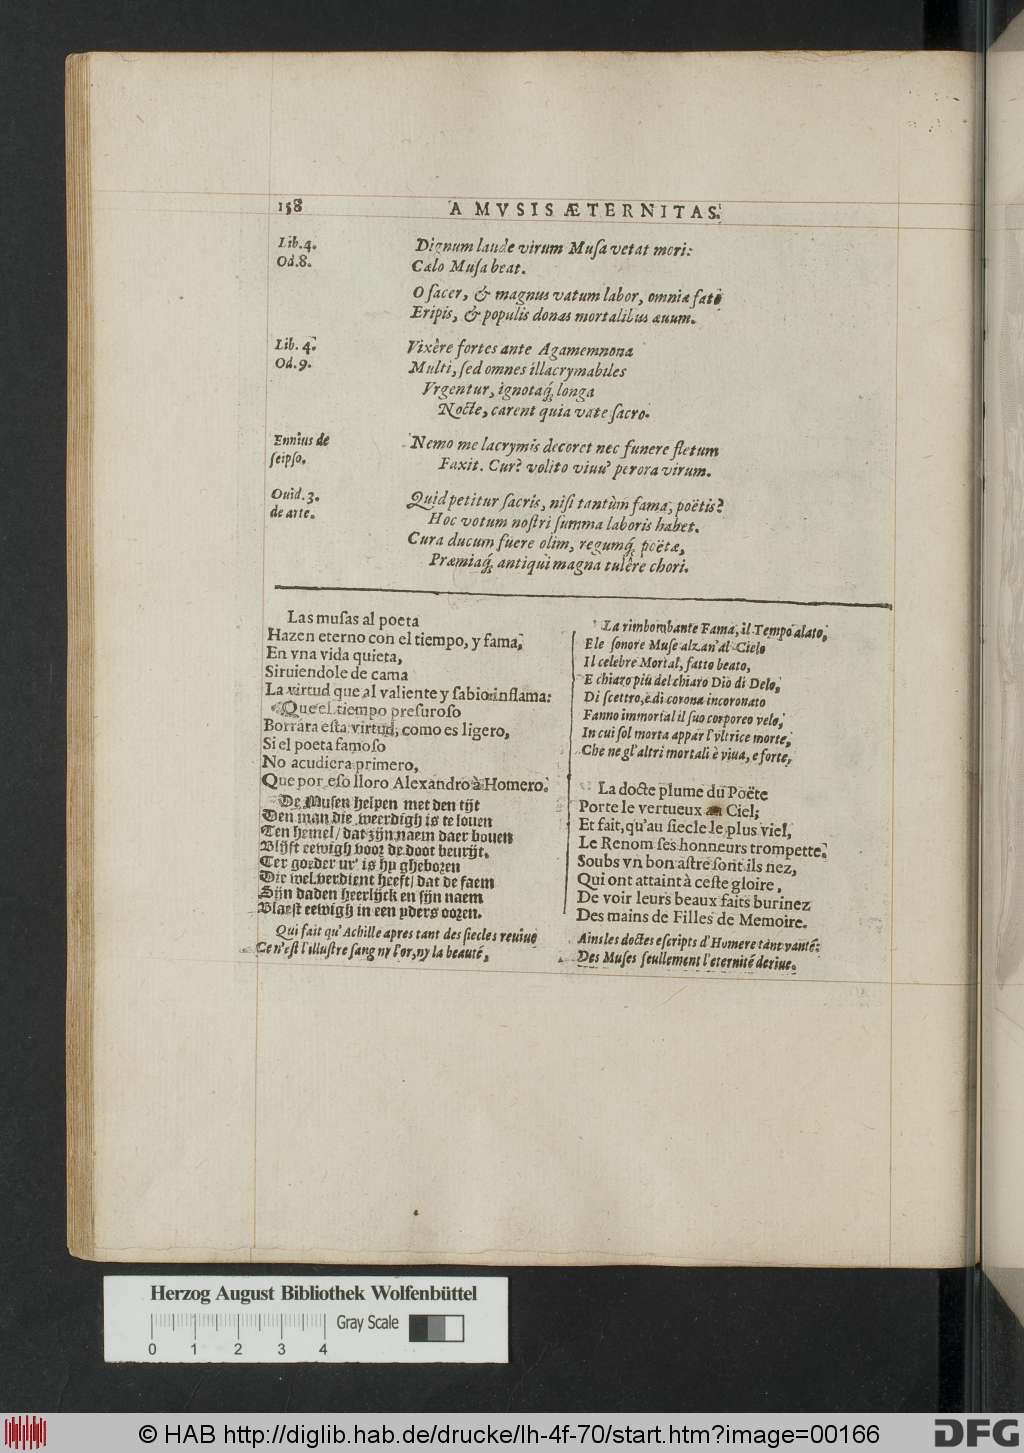 158
A MVSIS ÆTERNITAS.
Lib. 4.
Od. 8.
Dignum laude virum Musa vetat mori:
Cælo Musa beat.
O sacer, & magnus vatum labor, omnia fato
Eripis, & populis donas mortalibus æuum.
Lib. 4.
Od. 9.
Vixêre fortes ante Agamemnona
Multi, sed omnes illacrymabiles
Vrgentur, ignotaq́; longa
Nocte, carent quia vate sacro.
Ennius de
seipso.
Nemo me lacrymis decoret nec funere fletum
Faxit. Cur? volito viuu' per ora virum.
Ouid. 3.
de arte.
Quid petitur sacris, nisi tantùm fama, poëtis?
Hoc votum nostri summa laboris habet.
Cura ducum fuere olim, regumq́; poëtæ,
Præmiaq́; antiqui magna tulêre chori.
Las musas al poeta
Hazen eterno con el tiempo, y fama,
En vna vida quieta,
Siruiendole de cama
La virtud que al valiente y sabio inflama:
Que el tiempo presuroso
Borrara esta virtud, como es ligero,
Si el poeta famoso
No acudiera primero,
Que por eso lloro Alexandro à Homero.
De Musen helpen met den tijt
Den man die weerdigh is te louen
Ten hemel/ dat zijn naem daer bouen
Blijft eewigh voor de doot beurijt.
Ter goeder ur' is hy ghebozen
Die wel verdient heeft/ dat de faem
Sijn daden heerlijck en sijn naem
Blaest eewigh in een yders oozen.
Qui fait qu' Achille apres tant des siecles reuiue
Ce n'est l'illustre sang ny l'or, ny la beauté,
La rimbombante Fama, il Tempo alato,
E le sonore Muse alzan' al Cielo
Il celebre Mortal, fatto beato,
E chiaro più del chiaro Dio di Delo,
Di scettro, e di corona incoronato
Fanno immortal il suo corporeo velo,
In cui sol morta appar l'vltrice morte,
Che ne gl'altri mortali è viua, e forte,
La docte plume du Poëte
Porte le vertueux au Ciel;
Et fait, qu'au siecle le plus viel,
Le Renom ses honneurs trompette.
Soubs vn bon astre sont ils nez,
Qui ont attaint à ceste gloire,
De voir leurs beaux faits burinez
Des mains de Filles de Memoire.
Ains les doctes escripts d'Homere tant vanté:
Des Muses seullement l'eternité deriue.
Herzog August Bibliothek Wolfenbüttel
0 1 2 3 4
Gray Scale
© HAB http://diglib.hab.de/drucke/lh-4f-70/start.htm?image=00166
DFG